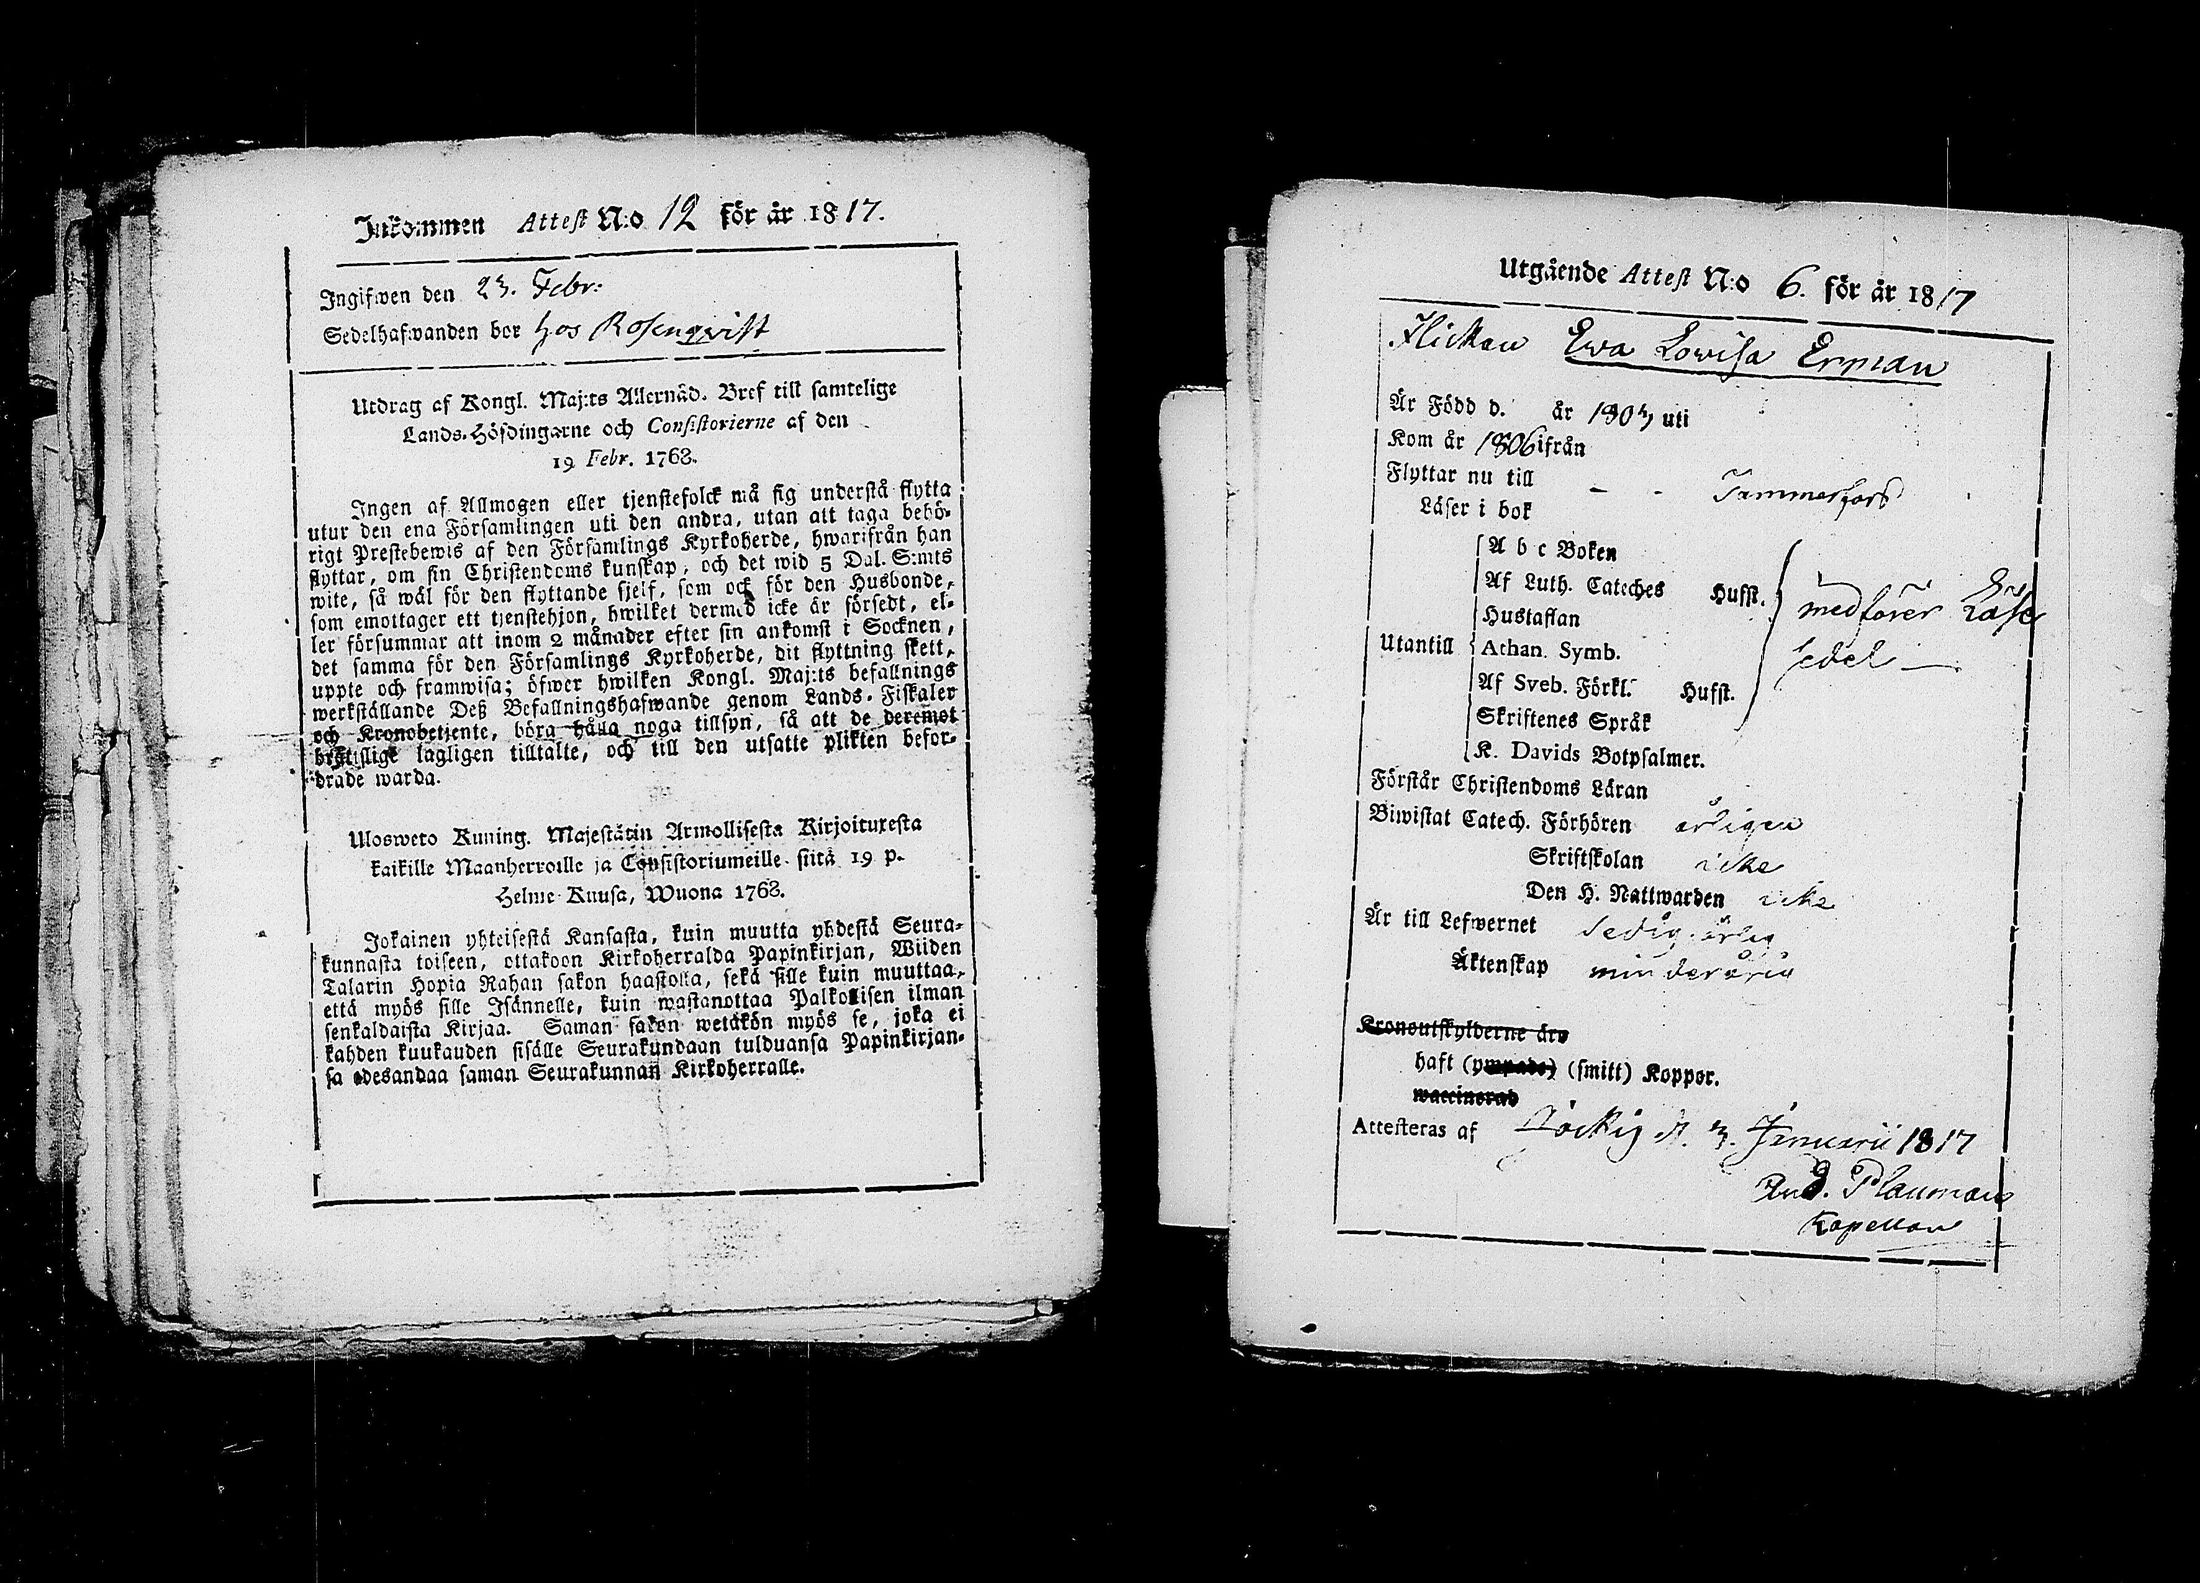 Inkommen Attest N:o 12 för år 1817.
Ingifwen den 23. Febr:
Sedelhafwanden bor hos Rosenqvist
Utdrag af Kongl. Maj:ts Allernåd. Bref till samtelige
Lands-Höfdingarne och Consistorierne af den
19 Febr. 1768.
Ingen af Allmogen eller tjenstefolck må sig understå flytta
utur den ena Församlingen uti den andra, utan att taga behö-
rigt Prestebewis af den Församlings Kyrkoherde, hwarifrån han
flyttar, om sin Christendoms kunskap, och det wid 5 Dal. S:mts
wite, så wäl för den flyttande sjelf, som ock för den Husbonde,
som emottager ett tjenstehjon, hwilket dermed icke är försedt, el-
ler försummar att inom 2 månader efter sin ankomst i Socknen,
det samma för den Församlings Kyrkoherde, dit flyttning skett,
uppte och framwisa; öfwer hwilken Kongl. Maj:ts befallnings
werkställande Deß Befallningshafwande genom Lands-Fiskaler
och Kronobetjente, böra hålla noga tillsyn, så att de deremot
brottslige lagligen tilltalte, och till den utsatte plikten befor-
drade warda.
Ulosweto Kuning. Majestätin Armollisesta Kirjoituxesta
kaikille Maanherroille ja Consistoriumeille siitä 19 p.
Helme-Kuusa, Wuona 1768.
Jokainen yhteisestä Kansasta, kuin muutta yhdestä Seura-
kunnasta toiseen, ottakoon Kirkoherralda Papinkirjan, Wiiden
Talarin Hopia Rahan sakon haastolla, sekä sille kuin muuttaa,
että myös sille Isännelle, kuin wastanottaa Palkollisen ilman
senkaldaista Kirjaa. Saman sakon wetäkön myös se, joka ei
kahden kuukauden sisälle Seurakundaan tulduansa Papinkirjan-
sa edesandaa saman Seurakunnan Kirkoherralle.
Utgående Attest N:o 6. för år 1817
Flickan Ewa Lowisa Erman
Är Född d. år 1803 uti
Kom år 1806 ifrån
Flyttar nu till - - Tammerfors
Läser i bok
A b c Boken
Af Luth. Cateches Husst.
Hustaflan
medförer Läse
Utantill Athan. Symb.
sedel
Af Sveb. Förkl. Husst.
Skriftenes Språk
K. Davids Botpsalmer.
Förstår Christendoms Läran
Biwistat Catech. Förhören årligen
Skriftskolan icke
Den H. Nattwarden icke
Är till Lefwernet
Äktenskap minderårig
Kronoutskylderne äro
haft (ympade) (smitt) Koppor.
waccinerad
Attesteras af Jockis d. 3. Januarii 1817
And. Plauman
Kapellan